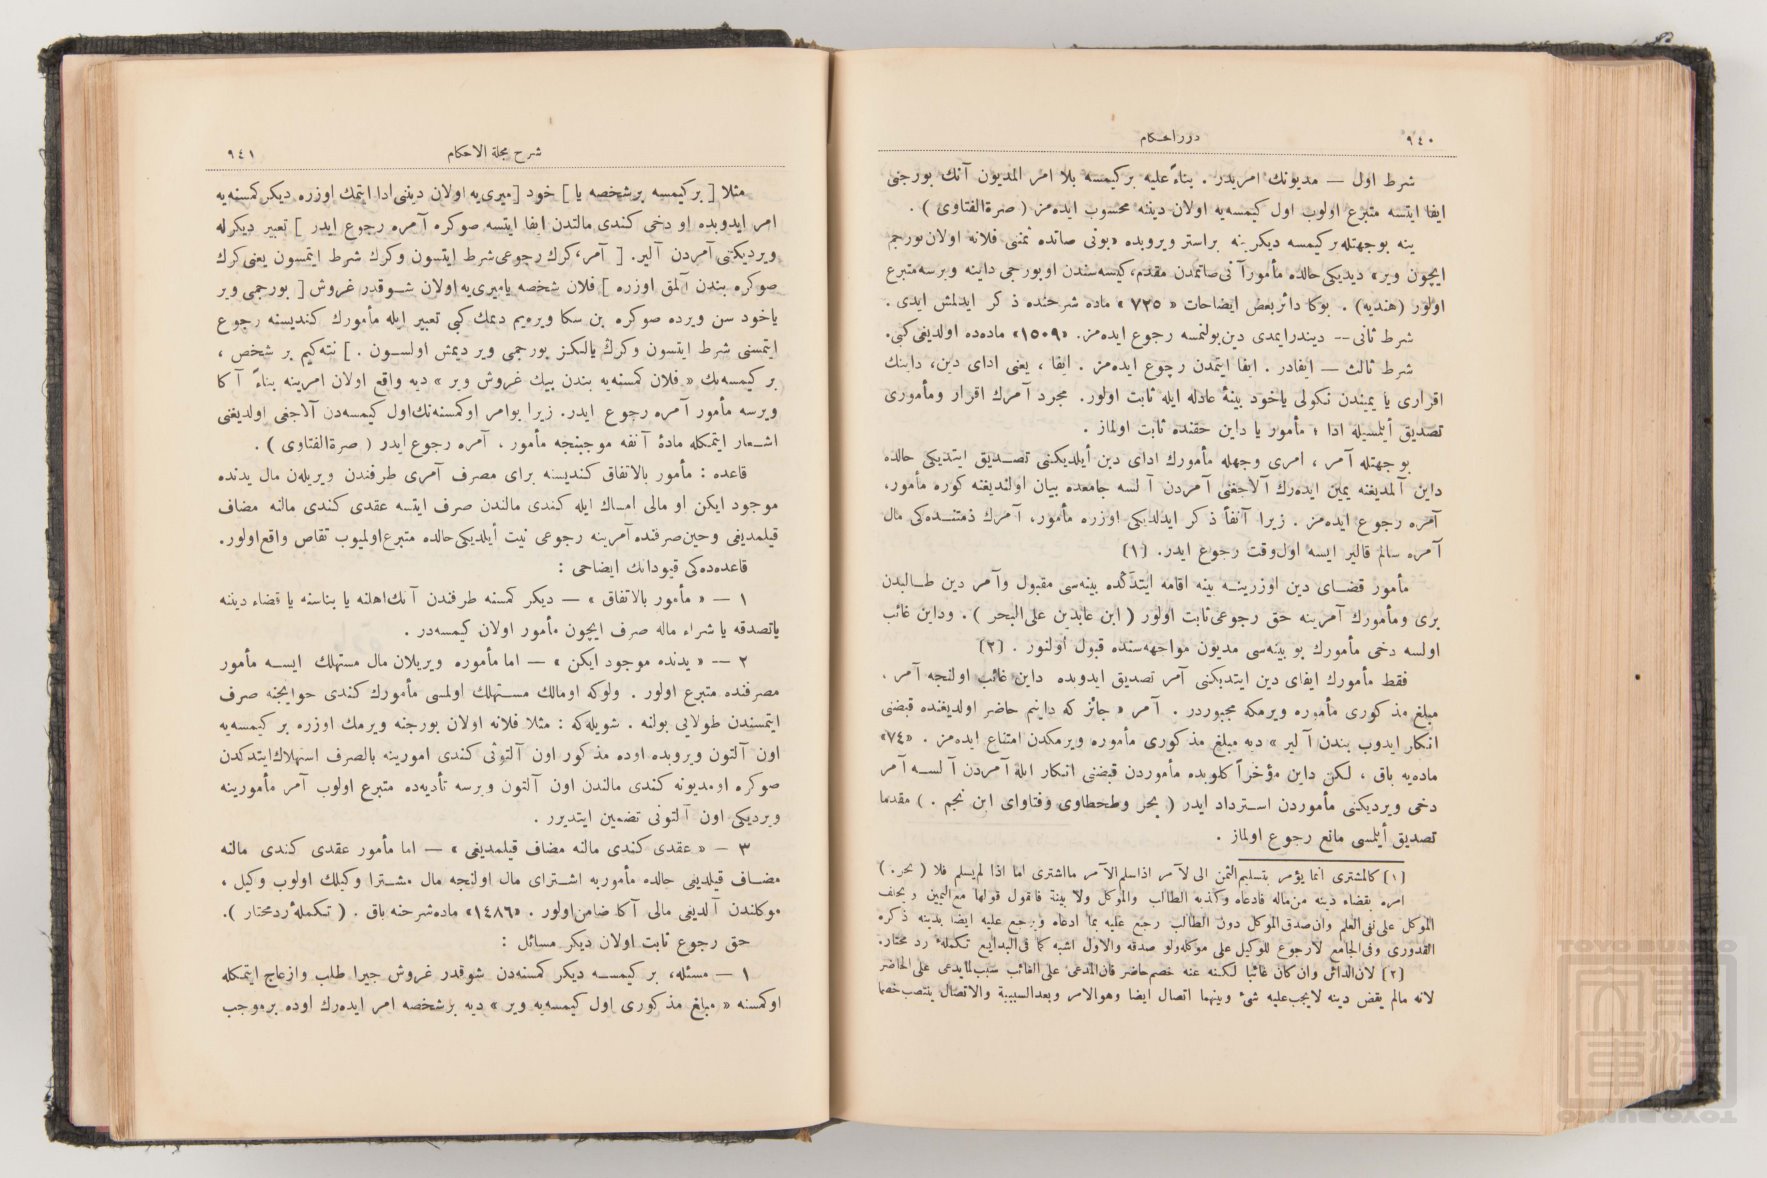 ٩٤٠
درر الحكام
شرط اول — مديونك امريدر . بناءً عليه بركيمسه بلا امر المديون آنك بورجنى
ايفا ايتسه متبرع اولوب اول كيمسه‌يه اولان ديننه محسوب ايده‌مز ( صرة‌الفتاوى ) .
ينه بوجهتله بر كيمسه ديكرينه براستر ويروبده «بونى صاتده ثمننى فلانه اولان بورجم
ايچون وير» ديديكى حالده مأمور آنى صاتمدن مقدم، كيسه‌سندن اوبورجى داينه ويرسه متبرع
اولور (هنديه) . بوكا دائر بعض ايضاحات « ٧٢٥ » ماده شرحنده ذكر ايدلمش ايدى .
شرط ثانى -- ديندر ايمدى دين بولنمسه رجوع ايده‌مز. «١٥٠٩» ماده‌ده اولديغى كبى.
شرط ثالث — ايفادر . ايفا ايتمدن رجوع ايده‌مز . ايفا ، يعنى اداى دين، داينك
اقرارى يا يميندن نكولى ياخود بينهٔ عادله ايله ثابت اولور. مجرد آمرك اقرار ومأمورى
تصديق أيلمسيله ادا ؛ مأمور يا داين حقنده ثابت اولماز .
بو جهتله آمر ، امرى وجهله مأمورك اداى دين أيلديكنى تصديق ايتديكى حالده
داين آلمديغنه يمين ايده‌رك آلاجغنى آمردن آلسه جامعده بيان اولنديغنه كوره مأمور،
آمره رجوع ايده‌مز . زيرا آنفاً ذكر ايدلديكى اوزره مأمور، آمرك ذمتنده‌كى مال
آمره سالم قالير ايسه اول وقت رجوع ايدر. [١]
مأمور قضاى دين اوزرينه بينه اقامه ايتدكده بينه‌سى مقبول وآمر دين طالبدن
برى ومأمورك آمرينه حق رجوعى ثابت اولور ( ابن عابدين على البحر ) . وداين غائب
اولسه دخى مأمورك بو بينه‌سى مديون مواجهه‌سنده قبول اولنور . [٢]
فقط مأمورك ايفاى دين ايتديكنى آمر تصديق ايدوبده داين غائب اولنجه آمر ،
مبلغ مذكورى مأموره ويرمكه مجبوردر . آمر « جائز كه داينم حاضر اولديغنده قبضنى
انكار ايدوب بندن آلير » ديه مبلغ مذكورى مأموره ويرمكدن امتناع ايده‌مز . «٧٤»
ماده‌يه باق ، لكن داين مؤخراً كلوبده مأموردن قبضنى انكار ايله آمردن آلسه آمر
دخى ويرديكنى مأموردن استرداد ايدر ( بحر وطحطاوى وفتاواى ابن نجيم . ) مقدما
تصديق أيلمسى مانع رجوع اولماز .
[١] كالمشترى انما يؤمر بتسليم الثمن الى لآمر اذاسلم الآمر مااشترى اما اذا لم يسلم فلا ( بحر. )
امره بقضاء دينه من ماله فادعاه وكذبه الطالب والموكل ولا بينة فالقول قولهما مع اليمين ويحلف
الموكل على نفى العلم وان صدق الموكل دون الطالب رجع عليه بما ادعاه ويرجع عليه ايضا بدينه ذكره
القدورى وفى الجامع لارجوع للوكيل على موكله ولو صدقه والاول اشبه كما فى البدايع تكملهٔ رد محتار.
[٢] لان الدائن وان كان غائبا لكنه عنه خصم حاضر فان المدعى على الغائب سبب لمايدعى على الحاضر
لانه مالم يقض دينه لايجب عليه شئ وبينهما اتصال ايضا وهو الامر وبعد السببية والاتصال ينتصب خصما
شرح مجلة الاحكام
٩٤١
مثلا [ بر كيمسه برشخصه يا ] خود [ ميرى‌يه اولان ديننى ادا ايتمك اوزره ديكر كمسنه‌يه
امر ايدوبده او دخى كندى مالندن ايفا ايتسه صوكره آمره رجوع ايدر ] تعبير ديكرله
ويرديكنى آمردن آلير. [ آمر، كرك رجوعى شرط ايتسون وكرك شرط ايتمسون يعنى كرك
صوكره بندن آلمق اوزره ] فلان شخصه ياميرى‌يه اولان شوقدر غروش [ بورجمى وير
ياخود سن ويرده صوكره بن سكا ويره‌يم ديمك كبى تعبير ايله مأمورك كنديسنه رجوع
ايتمسنى شرط ايتسون وكرك يالكز بورجمى وير ديمش اولسون . ] نته‌كيم بر شخص ،
بر كيمسه‌نك « فلان كمسنه‌يه بندن بيك غروش وير » ديه واقع اولان امرينه بناءً آكا
ويرسه مأمور آمره رجوع ايدر. زيرا بوامر اوكمسنه‌نك اول كيمسه‌دن آلاجغى اولديغنى
اشعار ايتمكله مادهٔ آنفه موجبنجه مأمور ، آمره رجوع ايدر ( صرة‌الفتاوى ) .
قاعده : مأمور بالاتفاق كنديسنه براى مصرف آمرى طرفندن ويريلن مال يدنده
موجود ايكن او مالى امساك ايله كندى مالندن صرف ايتسه عقدى كندى مالنه مضاف
قيلمديغى وحين صرفنده آمرينه رجوعى نيت أيلديكى حالده متبرع اولميوب تقاص واقع اولور.
قاعده‌ده‌كى قيوداتك ايضاحى :
١ — « مأمور بالاتفاق » — ديكر كمسنه طرفندن آنك اهلنه يا بناسنه يا قضاء ديننه
ياتصدقه يا شراء ماله صرف ايچون مأمور اولان كيمسه‌در .
٢ -- « يدنده موجود ايكن » — اما مأموره ويريلان مال مستهلك ايسه مأمور
مصرفنده متبرع اولور . ولوكه اومالك مستهلك اولمسى مأمورك كندى حوايجنه صرف
ايتمسندن طولايى بولنه . شويله‌كه : مثلا فلانه اولان بورجنه ويرمك اوزره بر كيمسه‌يه
اون آلتون ويروبده اوده مذكور اون آلتونى كندى امورينه بالصرف استهلاك ايتدكدن
صوكره اومديونه كندى مالندن اون آلتون ويرسه تأديه‌ده متبرع اولوب آمر مأمورينه
ويرديكى اون آلتونى تضمين ايتديرر .
٣ — « عقدى كندى مالنه مضاف قيلمديغى » — اما مأمور عقدى كندى مالنه
مضاف قيلديغى حالده مأموربه اشتراى مال اولنجه مال مشترا وكيلك اولوب وكيل ،
موكلندن آلديغى مالى آكا ضامن اولور . «١٤٨٦» ماده شرحنه باق . ( تكملهٔ ردمحتار ).
حق رجوع ثابت اولان ديكر مسائل :
١ — مسئله، بر كيمسه ديكر كمسنه‌دن شوقدر غروش جبرا طلب وازعاج ايتمكله
اوكمسنه « مبلغ مذكورى اول كيمسه‌يه وير » ديه برشخصه امر ايده‌رك اوده برموجب
TOYO BUNKO